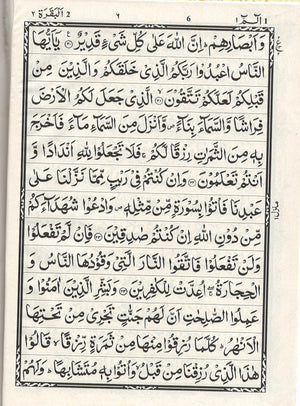 البقرة ٢ ٦ الٓمّٓ ١
وَاَبْصَارِهِمْ ؕ اِنَّ اللّٰهَ عَلٰى كُلِّ شَیْءٍ قَدِیْرٌ ۟ یٰۤاَیُّهَا
النَّاسُ اعْبُدُوْا رَبَّكُمُ الَّذِیْ خَلَقَكُمْ وَالَّذِیْنَ مِنْ
قَبْلِكُمْ لَعَلَّكُمْ تَتَّقُوْنَ ۟ الَّذِیْ جَعَلَ لَكُمُ الْاَرْضَ
فِرَاشًا وَّالسَّمَآءَ بِنَآءً ۪ وَّاَنْزَلَ مِنَ السَّمَآءِ مَآءً فَاَخْرَجَ
بِهٖ مِنَ الثَّمَرٰتِ رِزْقًا لَّكُمْ ۚ فَلَا تَجْعَلُوْا لِلّٰهِ اَنْدَادًا وَّ
اَنْتُمْ تَعْلَمُوْنَ ۟ وَاِنْ كُنْتُمْ فِیْ رَیْبٍ مِّمَّا نَزَّلْنَا عَلٰى
عَبْدِنَا فَاْتُوْا بِسُوْرَةٍ مِّنْ مِّثْلِهٖ ۪ وَادْعُوْا شُهَدَآءَكُمْ
مِّنْ دُوْنِ اللّٰهِ اِنْ كُنْتُمْ صٰدِقِیْنَ ۟ فَاِنْ لَّمْ تَفْعَلُوْا
وَلَنْ تَفْعَلُوْا فَاتَّقُوا النَّارَ الَّتِیْ وَقُوْدُهَا النَّاسُ وَ
الْحِجَارَةُ ۖۚ اُعِدَّتْ لِلْكٰفِرِیْنَ ۟ وَبَشِّرِ الَّذِیْنَ اٰمَنُوْا وَ
عَمِلُوا الصّٰلِحٰتِ اَنَّ لَهُمْ جَنّٰتٍ تَجْرِیْ مِنْ تَحْتِهَا
الْاَنْهٰرُ ؕ كُلَّمَا رُزِقُوْا مِنْهَا مِنْ ثَمَرَةٍ رِّزْقًا ۙ قَالُوْا
هٰذَا الَّذِیْ رُزِقْنَا مِنْ قَبْلُ ۙ وَاُتُوْا بِهٖ مُتَشَابِهًا ؕ وَلَهُمْ